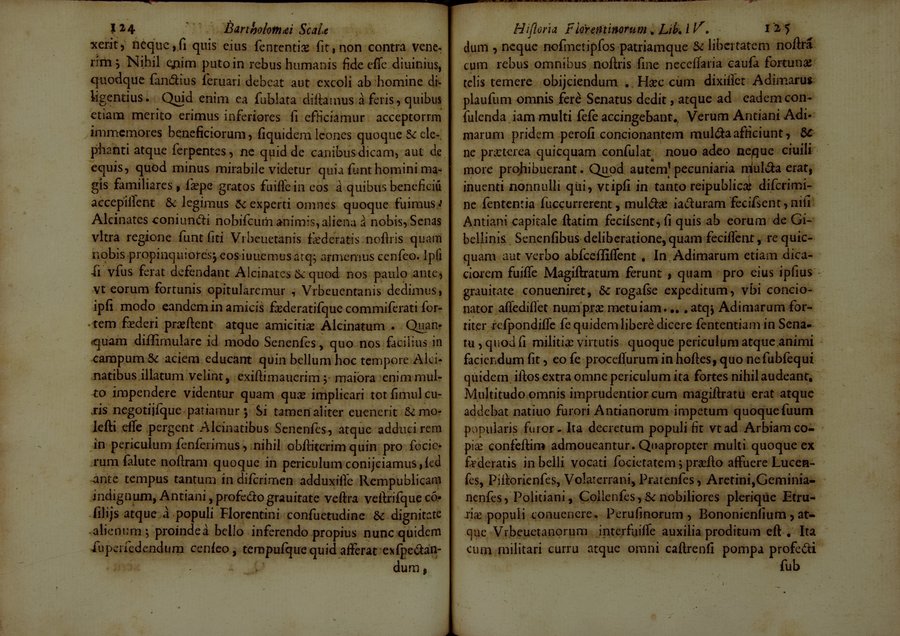 124 Bartholomæi Scalæ
xerit, neque, ſi quis eius ſententiæ ſit, non contra vene-
rim; Nihil enim puto in rebus humanis fide eſſe diuinius,
quodque ſanctius ſeruari debeat aut excoli ab homine di-
ligentius. Quid enim ea ſublata diſtamus à feris, quibus
etiam merito erimus inferiores ſi efficiamur acceptorrm
immemores beneficiorum, ſiquidem leones quoque & ele-
phanti atque ſerpentes, ne quid de canibus dicam, aut de
equis, quod minus mirabile videtur quia ſunt homini ma-
gis familiares, ſæpe gratos fuiſſe in eos à quibus beneficiũ
accepiſſent & legimus & experti omnes quoque fuimus.
Alcinates coniuncti nobiſcum animis, aliena à nobis, Senas
vltra regione ſunt ſiti Vrbeuetanis fæderatis noſtris quam
nobis propinquiores; eos iuuemus atq; armemus cenſeo. Ipſi
ſi vſus ferat defendant Alcinates & quod nos paulo ante,
vt eorum fortunis opitularemur, Vrbeuentanis dedimus,
ipſi modo eandem in amicis fæderatiſque commiſerati for-
tem fæderi præſtent atque amicitiæ Alcinatum. Quan-
quam diſſimulare id modo Senenſes, quo nos facilius in
campum & aciem educant quin bellum hoc tempore Alci-
natibus illatum velint, exiſtimauerim; maiora enim mul-
to impendere videntur quam quæ implicari tot ſimul cu-
ris negotijſque patiamur; Si tamen aliter euenerit & mo-
leſti eſſe pergent Alcinatibus Senenſes, atque adduci rem
in periculum ſenſerimus, nihil obſtiterim quin pro ſocio-
rum ſalute noſtram quoque in periculum conijciamus, ſed
ante tempus tantum in diſcrimen adduxiſſe Rempublicam
indignum, Antiani, profecto grauitate veſtra veſtriſque cõ-
ſilijs atque à populi Florentini conſuetudine & dignitate
alienum; proinde à bello inferendo propius nunc quidem
ſuperſedendum cenſeo, tempuſque quid afferat exſpectan-
dum,
Hiſtoria Florentinorum. Lib. IV. 125
dum, neque noſmetipſos patriamque & libertatem noſtrã
cum rebus omnibus noſtris ſine neceſſaria cauſa fortunæ
telis temere obijciendum. Hæc cum dixiſſet Adimarus
plauſum omnis ferè Senatus dedit, atque ad eadem con-
ſulenda iam multi ſeſe accingebant. Verum Antiani Adi-
marum pridem peroſi concionantem mulcta afficiunt, &
ne præterea quicquam conſulat nouo adeo neque ciuili
more prohibuerant. Quod autem pecuniaria mulcta erat,
inuenti nonnulli qui, vt ipſi in tanto reipublicæ diſcrimi-
ne ſententia ſuccurrerent, mulctæ iacturam feciſſent, niſi
Antiani capitale ſtatim feciſſent, ſi quis ab eorum de Gi-
bellinis Senenſibus deliberatione, quam feciſſent, re quic-
quam aut verbo abſceſſiſſent. In Adimarum etiam dica-
ciorem fuiſſe Magiſtratum ferunt, quam pro eius ipſius
grauitate conueniret, & rogaſſe expeditum, vbi concio-
nator aſſediſſet num præ metu iam.... atq; Adimarum for-
titer reſpondiſſe ſe quidem liberè dicere ſententiam in Sena-
tu, quod ſi militiæ virtutis quoque periculum atque animi
faciendum ſit, eo ſe proceſſurum in hoſtes, quo ne ſubſequi
quidem iſtos extra omne periculum ita fortes nihil audeant.
Multitudo omnis imprudentior cum magiſtratu erat atque
addebat natiuo furori Antianorum impetum quoque ſuum
popularis furor. Ita decretum populi fit vt ad Arbiam co-
piæ confeſtim admoueantur. Quapropter multi quoque ex
fæderatis in belli vocati ſocietatem; præſto affuere Lucen-
ſes, Piſtorienſes, Volaterrani, Pratenſes, Aretini, Geminia-
nenſes, Politiani, Collenſes, & nobiliores plerique Etru-
riæ populi conuenere. Peruſinorum, Bononienſium, at-
que Vrbeuetanorum interfuiſſe auxilia proditum eſt. Ita
cum militari curru atque omni caſtrenſi pompa profecti
ſub